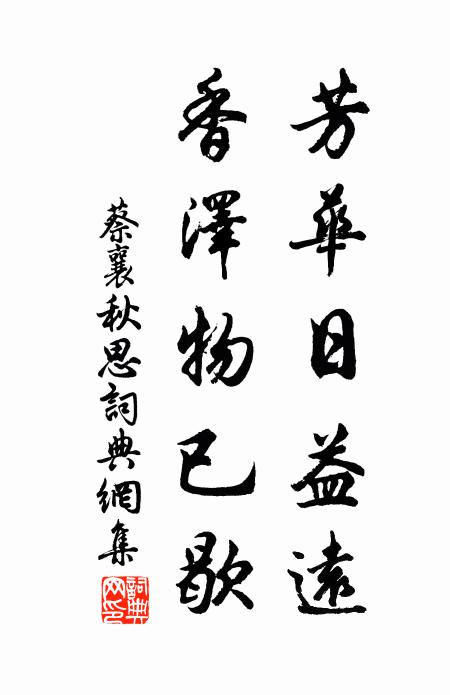 芳華日益遠
香澤物已歇
蔡襄秋思詞典網集
詞典網印